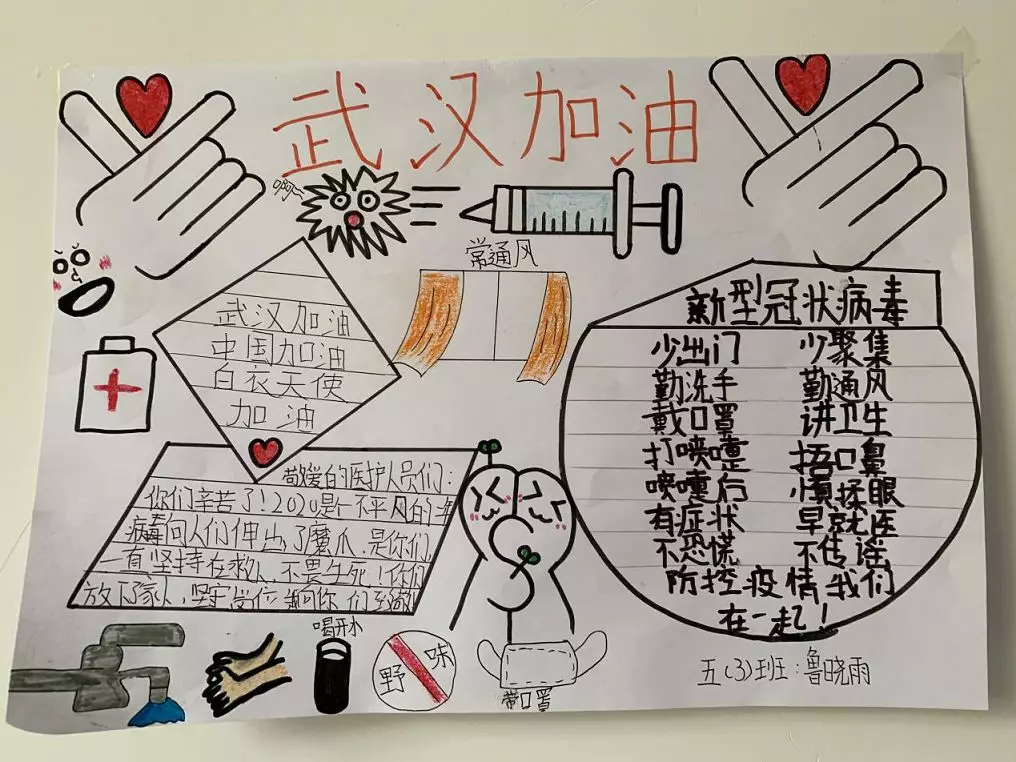 武汉加油
啊~
常通风
武汉加油
中国加油
白衣天使
加油
新型冠状病毒
少出门 少聚集
勤洗手 勤通风
戴口罩 讲卫生
打喷嚏 捂口鼻
喷嚏后 慎揉眼
有症状 早就医
不恐慌 不传谣
防控疫情我们
在一起!
敬爱的医护人员们:
你们辛苦了!2020是个不平凡的年
病毒向人们伸出了魔爪,是你们
一直坚持在救人,不畏生死!你们
放下家人,坚守岗位
喝开水
野味
带口罩
五(3)班:鲁晓雨